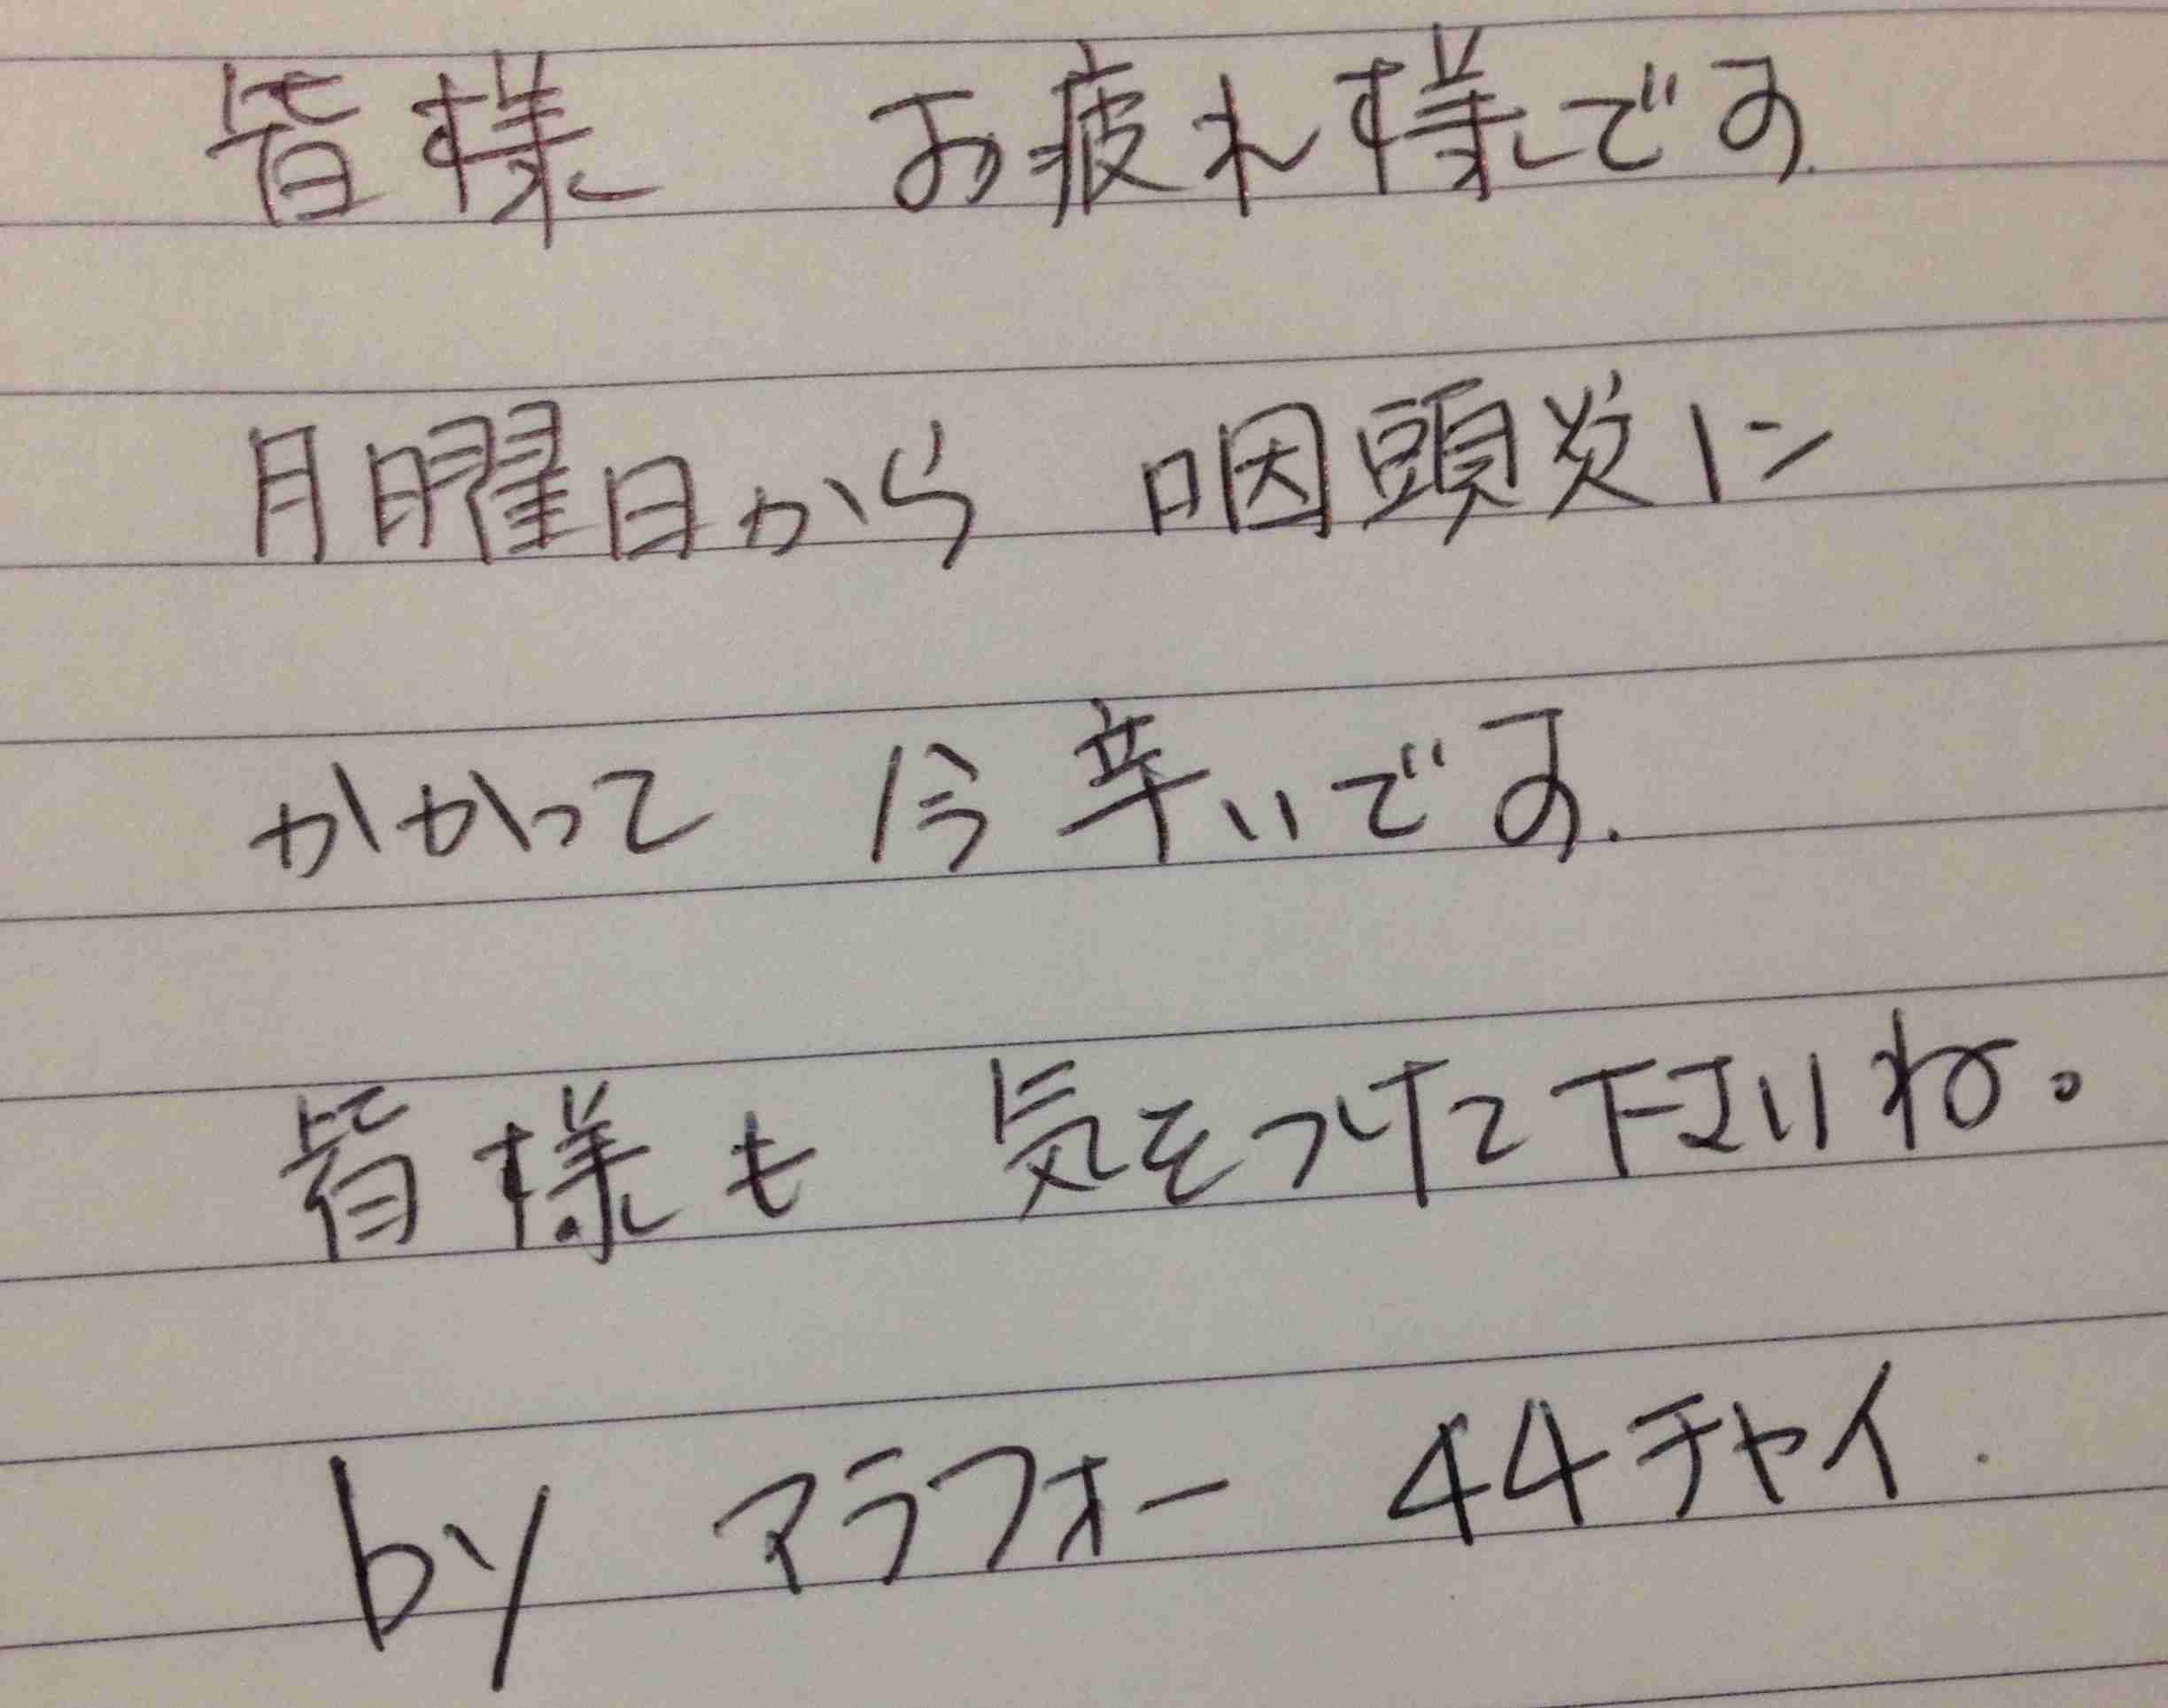 皆様 お疲れ様です.
月曜日から 咽頭炎に
かかって 今辛いです.
皆様も 気をつけて下さいね。
by アラフォー 44チャイ.